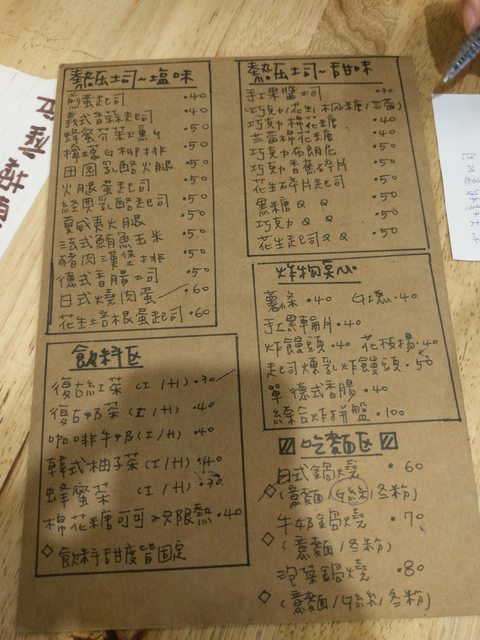 熱壓土司~塩味
煎蛋起司 ·40
義式香蒜起司 ·40
蜂蜜芥茉燻ㄐ ·50
檸檬ㄐ柳排 ·50
田園乳酪火腿 ·50
火腿蛋起司 ·50
經典乳酪起司 ·50
夏威夷火腿 ·50
法式鮪魚玉米 ·50
豬肉漢堡排 ·50
德式香腸土司 ·50
日式燒肉蛋 ·60
花生培根蛋起司 ·60
飲料区
復古紅茶 (I/H) ·30
復古ㄋ奶茶 (I/H) ·40
咖啡牛奶 (I/H) ·40
韓式柚子茶 (I/H) ·40
蜂蜜茶 (I/H) ·30
棉花糖可可 只限熱 ·40
◇飲料甜度皆固定
熱压土司~甜味
手工果醬土司
巧克力棉花糖 ·40
巧克力布朗尼 ·50
巧克力香蕉碎片 ·50
花生碎片起司 ·50
黑糖QQ ·50
巧克力QQ ·50
花生起司QQ ·50
炸物点心
薯條 ·40 ㄐ塊 ·40
手工黑輪片 ·40
炸饅頭 ·40 花枝揚 ·40
起司煉乳炸饅頭 ·50
單德式香腸 ·40
綜合炸拼盤 ·100
吃麵区
日式鍋燒 ·60
◇(意麵/ㄐ絲/冬粉)
牛奶鍋燒 ·70
◇(意麵/冬粉)
泡菜鍋燒 ·80
◇(意麵/ㄐ絲/冬粉)